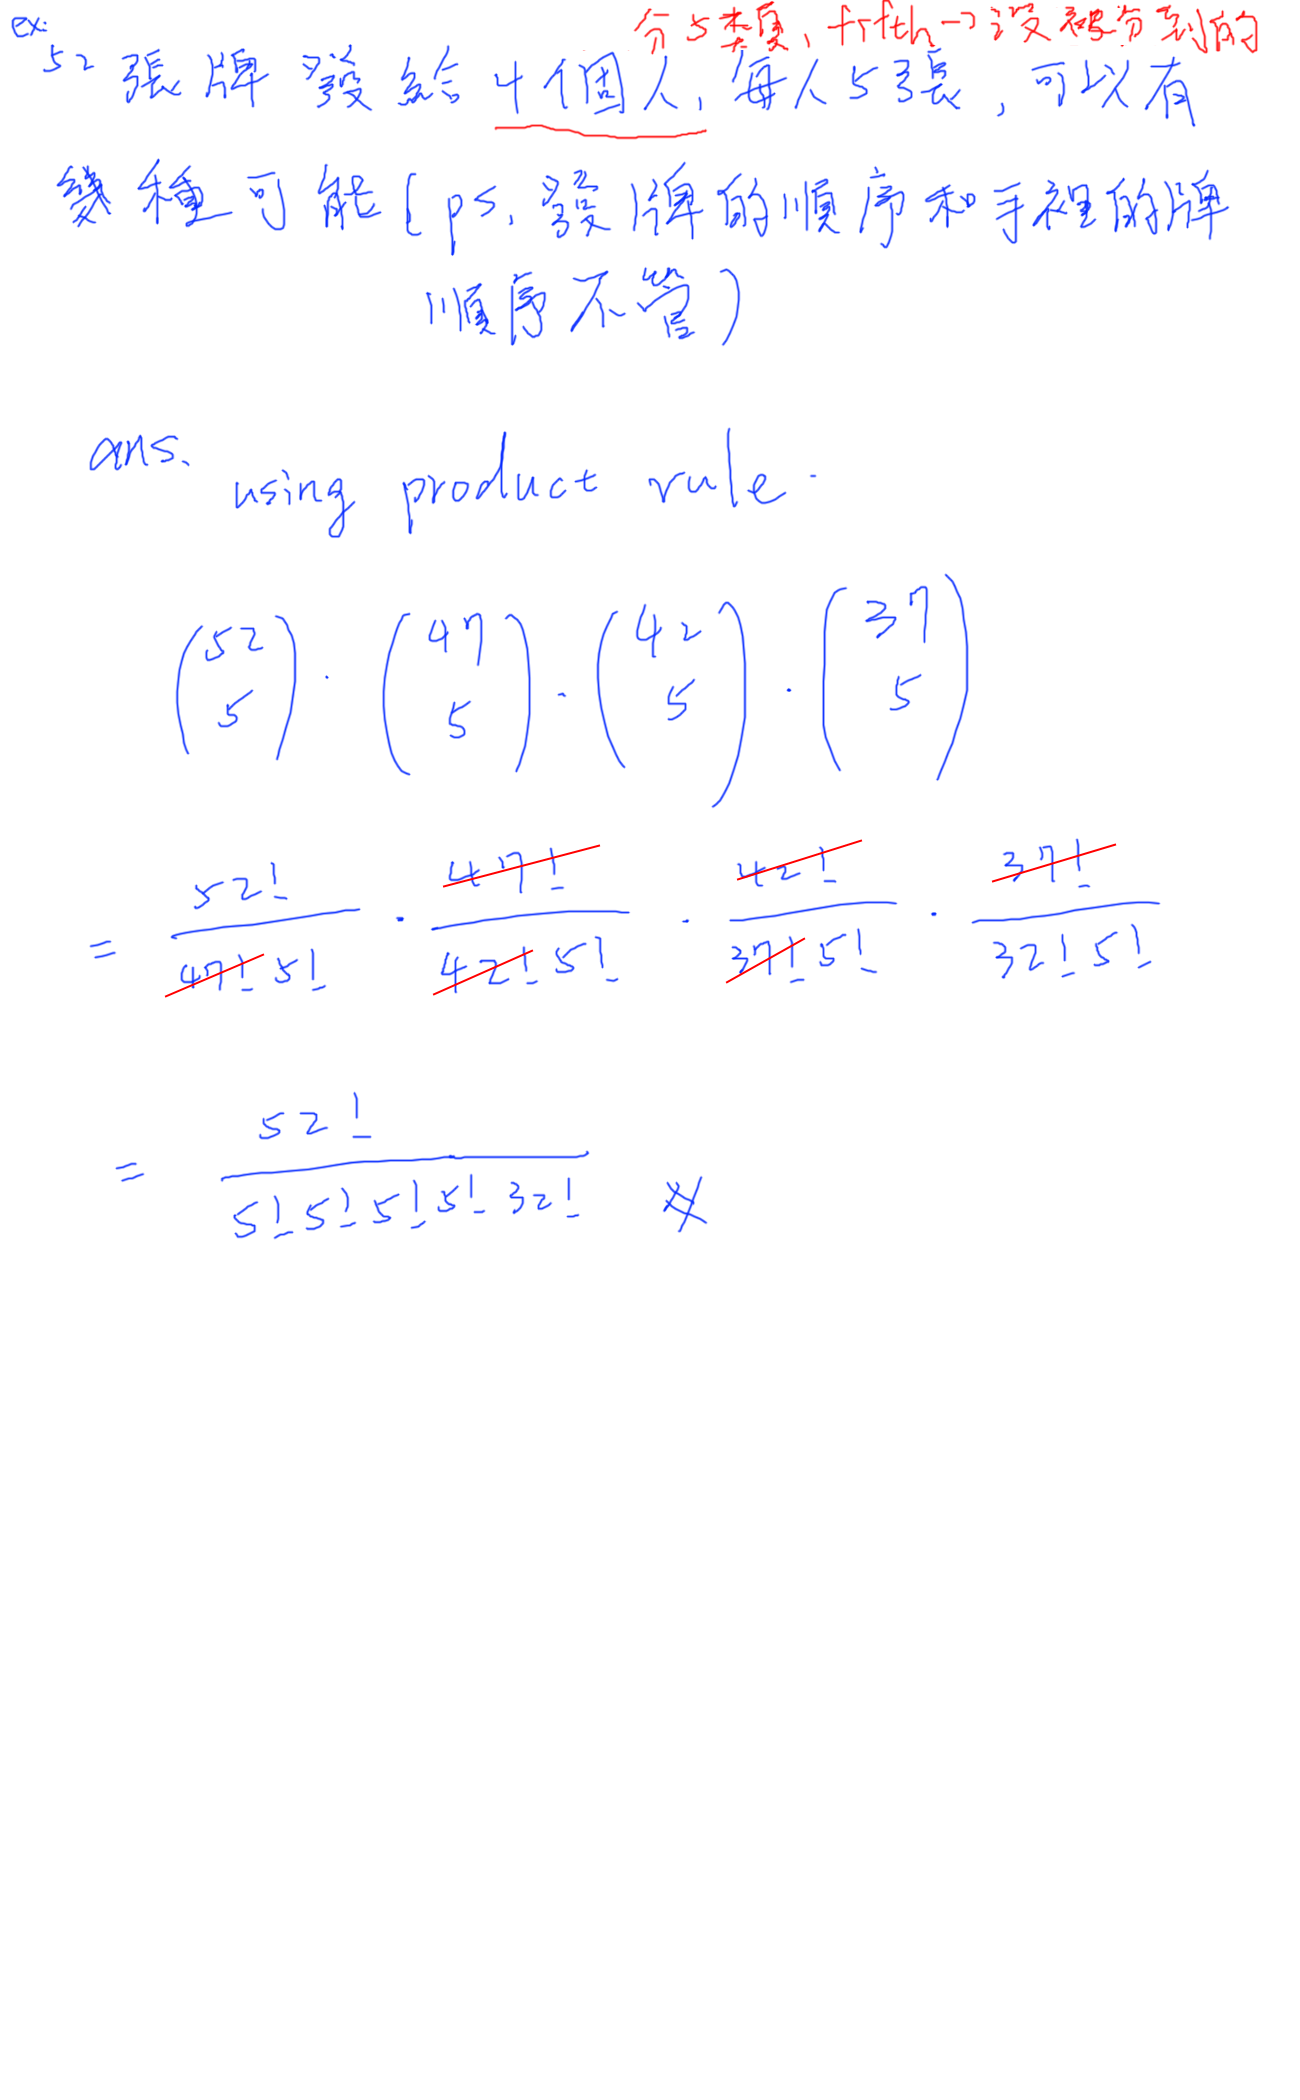 ex.
分5类頁, fifth→沒被分到的
52張牌發給4個人, 每人5張, 可以有
幾種可能(ps. 發牌的順序和手裡的牌
順序不管)
ans.
using product rule.
(52 5) · (47 5) · (42 5) · (37 5)
= 52!/(47! 5!) · 47!/(42! 5!) · 42!/(37! 5!) · 37!/(32! 5!)
= 52!/(5! 5! 5! 5! 32!)